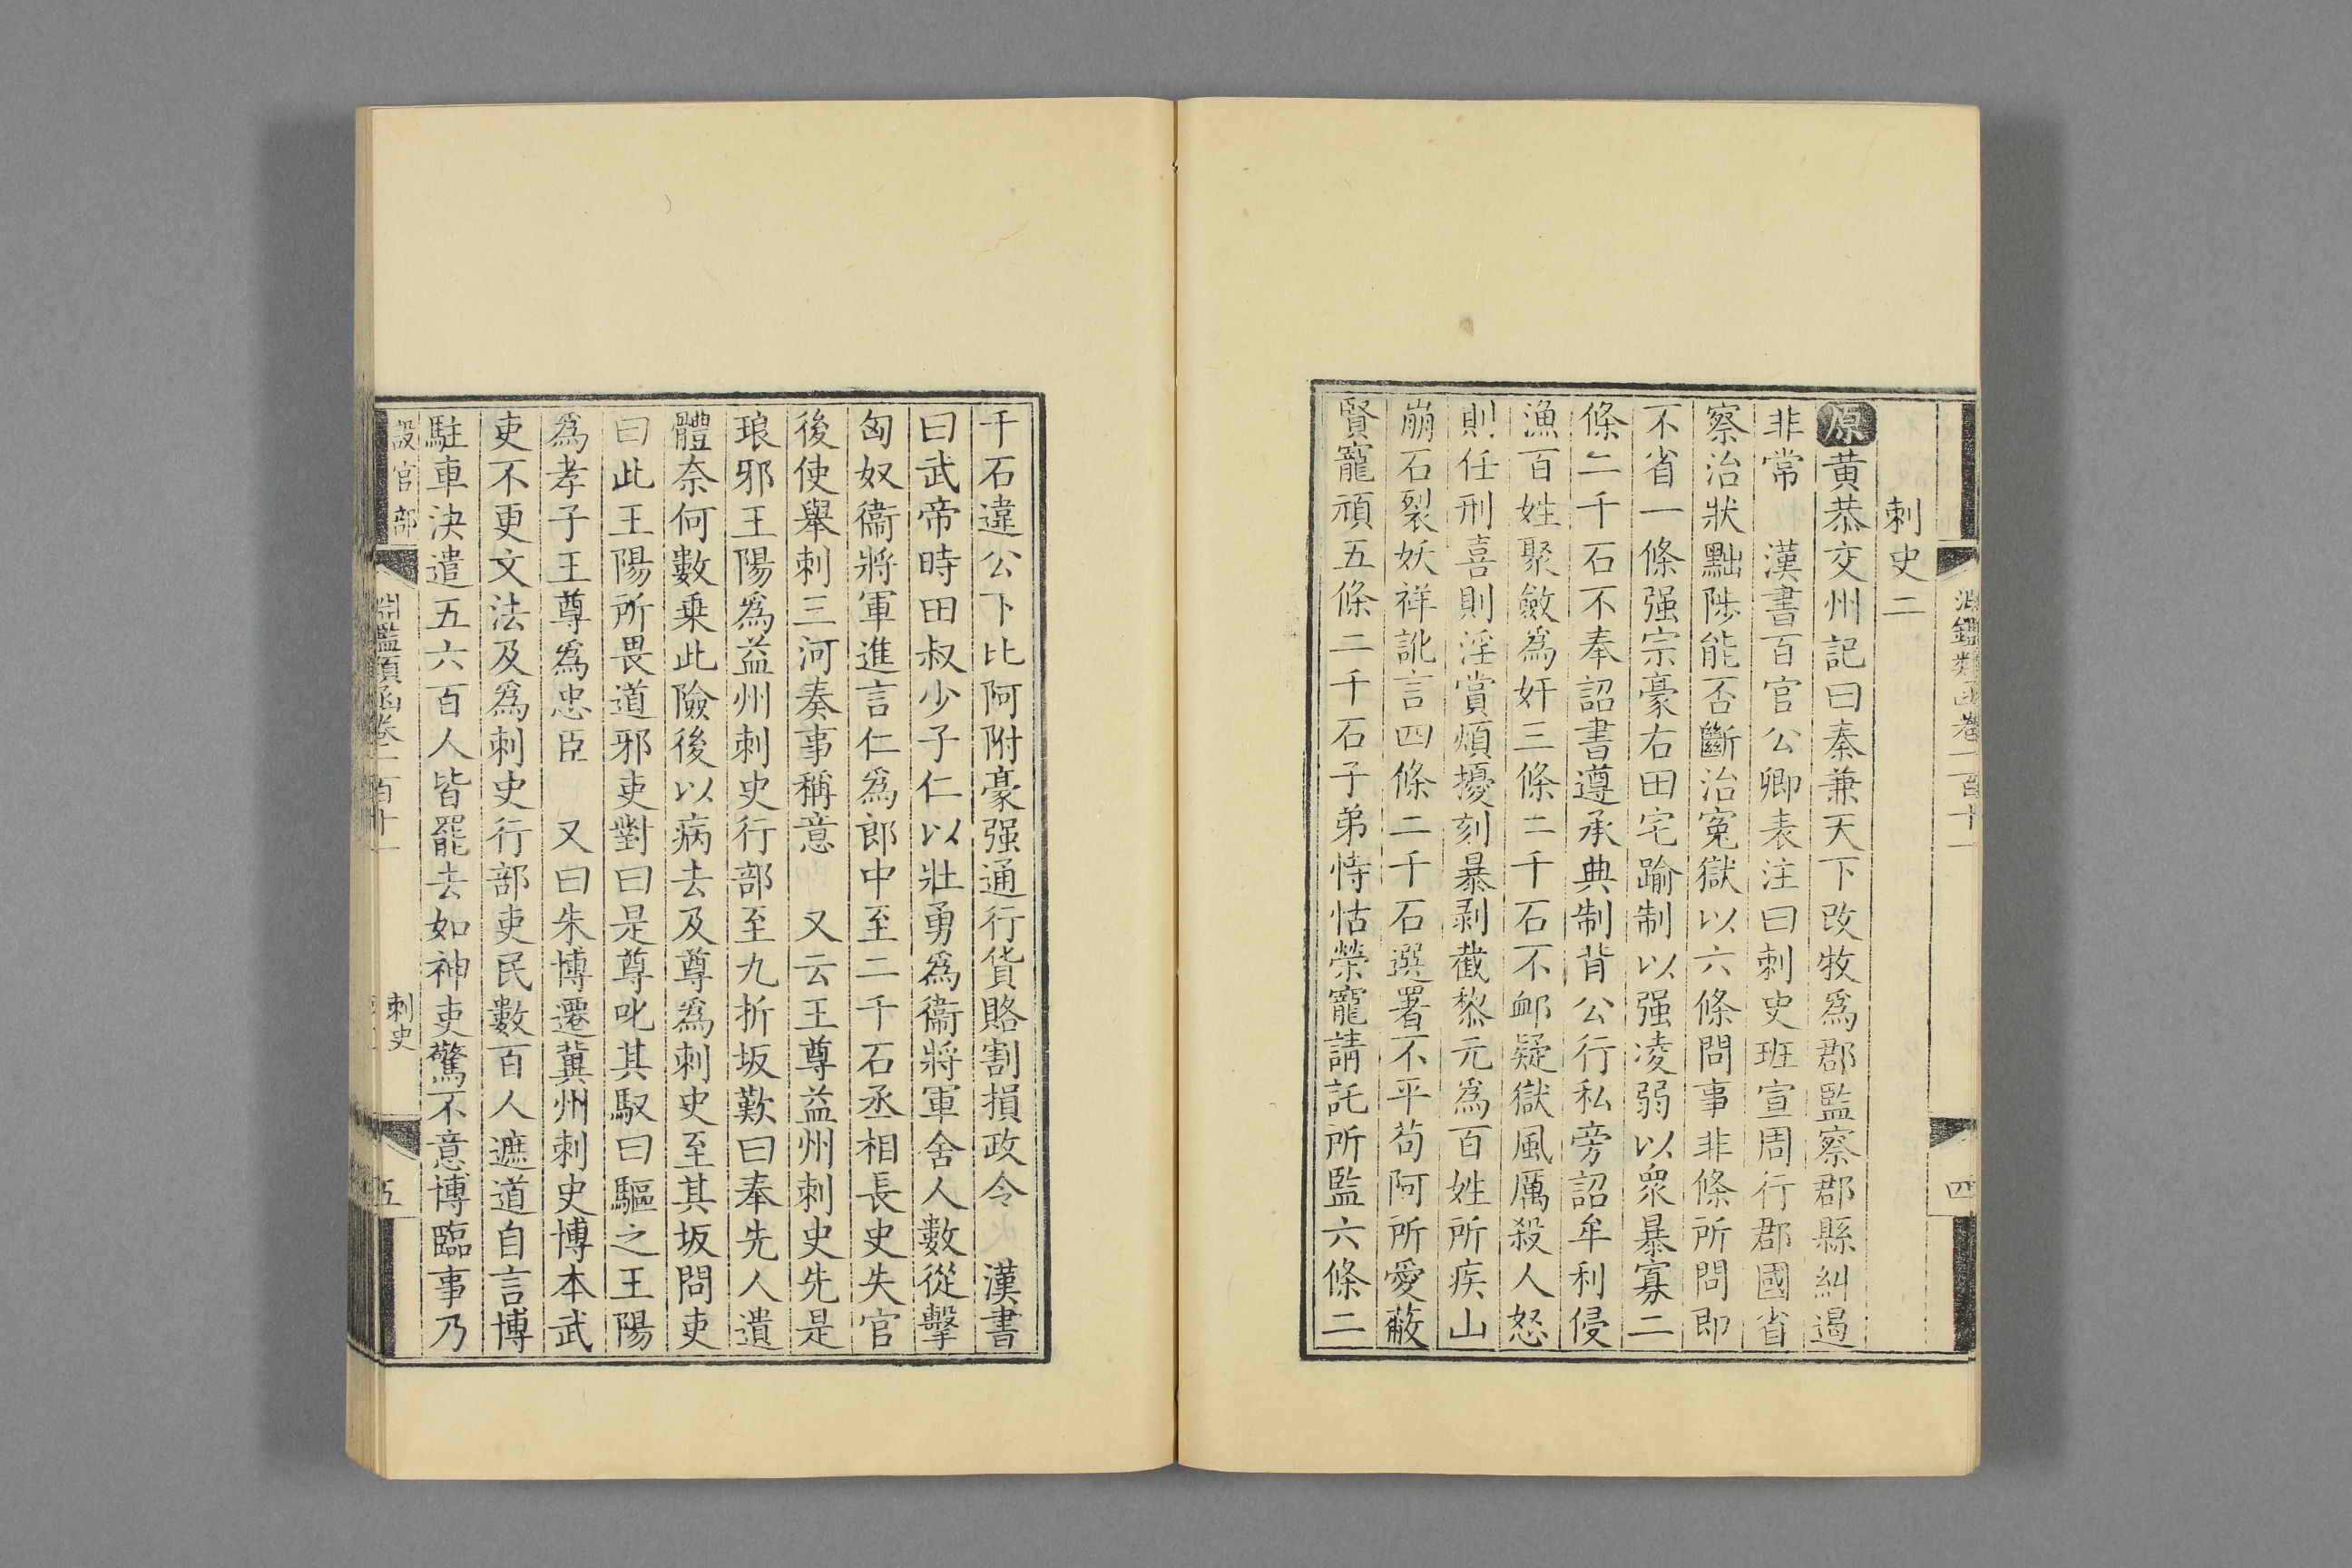 淵鑑類函卷一百十一
四
刺史二
原黄恭交州記曰秦兼天下改牧爲郡監察郡縣糾過
非常　漢書百官公卿表注曰刺史班宣周行郡國省
察治狀黜陟能否斷治寃獄以六條問事非條所問即
不省一條强宗豪右田宅踰制以强凌弱以衆暴寡二
條二千石不奉詔書遵承典制背公行私旁詔牟利侵
漁百姓聚斂爲奸三條二千石不䘏疑獄風厲殺人怒
則任刑喜則淫賞煩擾刻暴剥截黎元爲百姓所疾山
崩石裂妖祥訛言四條二千石選署不平茍阿所愛蔽
賢寵頑五條二千石子弟恃怙榮寵請託所監六條二
千石違公下比阿附豪强通行貨賂割損政令　漢書
曰武帝時田叔少子仁以壯勇爲衞將軍舍人數從擊
匈奴衞將軍進言仁爲郎中至二千石丞相長史失官
後使舉刺三河奏事稱意　又云王尊益州刺史先是
琅邪王陽爲益州刺史行部至九折坂歎曰奉先人遺
體奈何數乗此險後以病去及尊爲刺史至其坂問吏
曰此王陽所畏道邪吏對曰是尊叱其馭曰驅之王陽
爲孝子王尊爲忠臣　又曰朱博遷冀州刺史博本武
吏不更文法及爲刺史行部吏民數百人遮道自言博
駐車決遣五六百人皆罷去如神吏驚不意博臨事乃
設官部
淵鑑類函卷一百十一
刺史
五